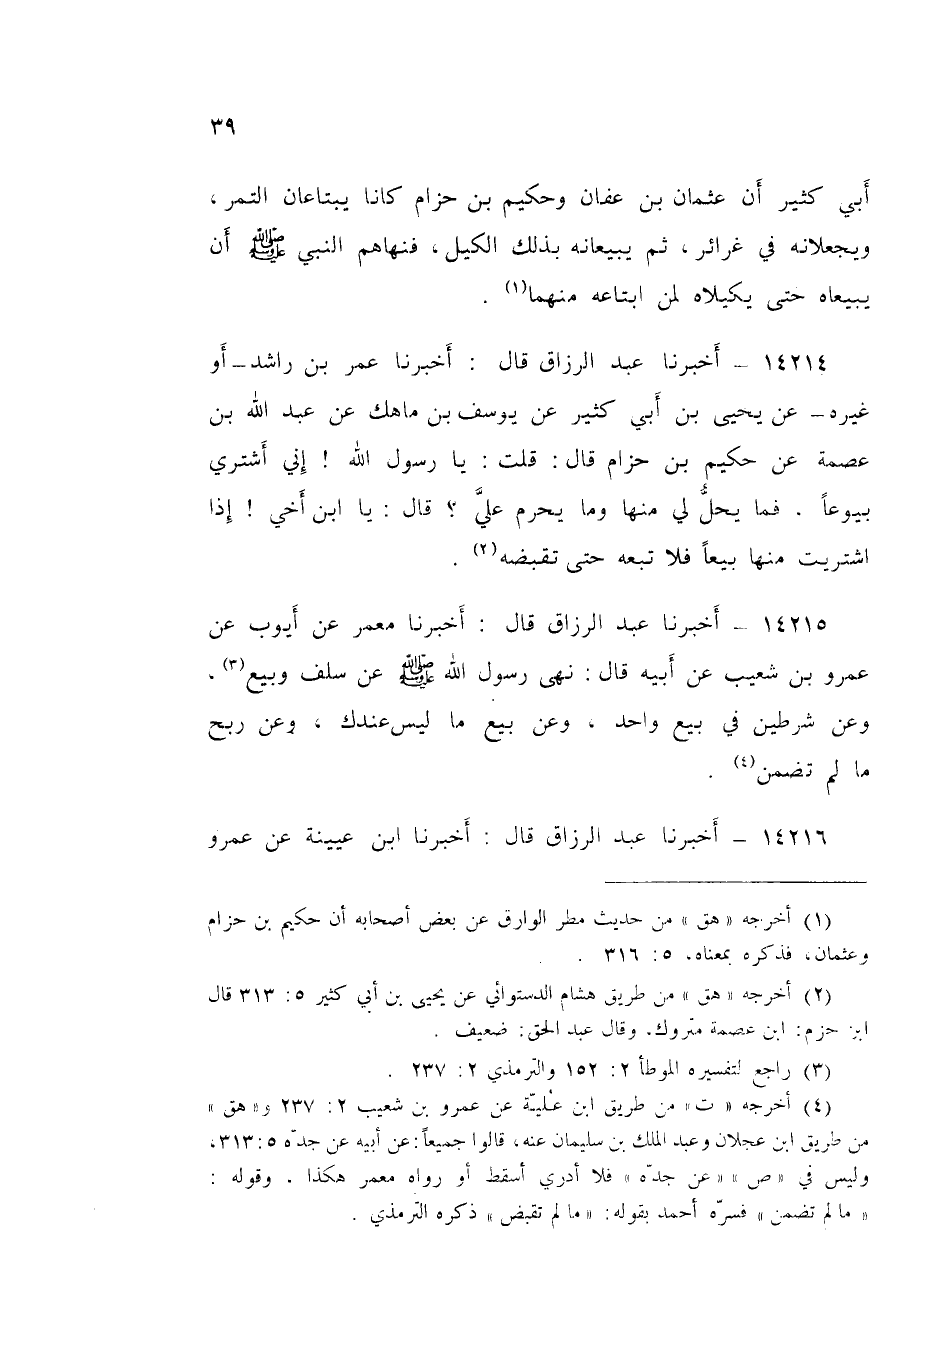 ٣٩
أَبي كثير أَن عثمان بن عفان وحكيم بن حزام كانا يبتاعان التمر ،
ويجعلانه في غرائر ، ثم يبيعانه بذلك الكيل ، فنهاهم النبي ﷺ أَن
يبيعاه حتى يكيلاه لمن ابتاعه منهما(١) .
١٤٢١٤ – أَخبرنا عبد الرزاق قال : أَخبرنا عمر بن راشد – أَو
غيره – عن يحيى بن أَبي كثير عن يوسف بن ماهك عن عبد الله بن
عصمة عن حكيم بن حزام قال : قلت : يا رسول الله ! إِني أَشتري
بيوعاً . فما يحلُّ لي منها وما يحرم عليَّ ؟ قال : يا ابن أَخي ! إِذا
اشتريت منها بيعاً فلا تبعه حتى تقبضه(٢) .
١٤٢١٥ – أَخبرنا عبد الرزاق قال : أَخبرنا معمر عن أَيوب عن
عمرو بن شعيب عن أَبيه قال : نهى رسول الله ﷺ عن سلف وبيع(٣) ،
وعن شرطين في بيع واحد ، وعن بيع ما ليس عندك ، وعن ربح
ما لم تضمن(٤) .
١٤٢١٦ – أَخبرنا عبد الرزاق قال : أَخبرنا ابن عيينة عن عمرو
(١) أخرجه « هق » من حديث مطر الوارق عن بعض أصحابه أن حكيم بن حزام
وعثمان، فذكره بمعناه. ٥: ٣١٦ .
(٢) أخرجه « هق » من طريق هشام الدستوائي عن يحيى بن أبي كثير ٥: ٣١٣ قال
ابن حزم: ابن عصمة متروك. وقال عبد الحق: ضعيف .
(٣) راجع لتفسيره الموطأ ٢: ١٥٢ والترمذي ٢: ٢٣٧ .
(٤) أخرجه « ت » من طريق ابن عُليّة عن عمرو بن شعيب ٢: ٢٣٧ و« هق »
من طريق ابن عجلان وعبد الملك بن سليمان عنه، قالوا جميعاً: عن أبيه عن جدّه ٥: ٣١٣،
وليس في « ص » « عن جدّه » فلا أدري أسقط أو رواه معمر هكذا . وقوله :
« ما لم تضمن » فسرّه أحمد بقوله: « ما لم تقبض » ذكره الترمذي .